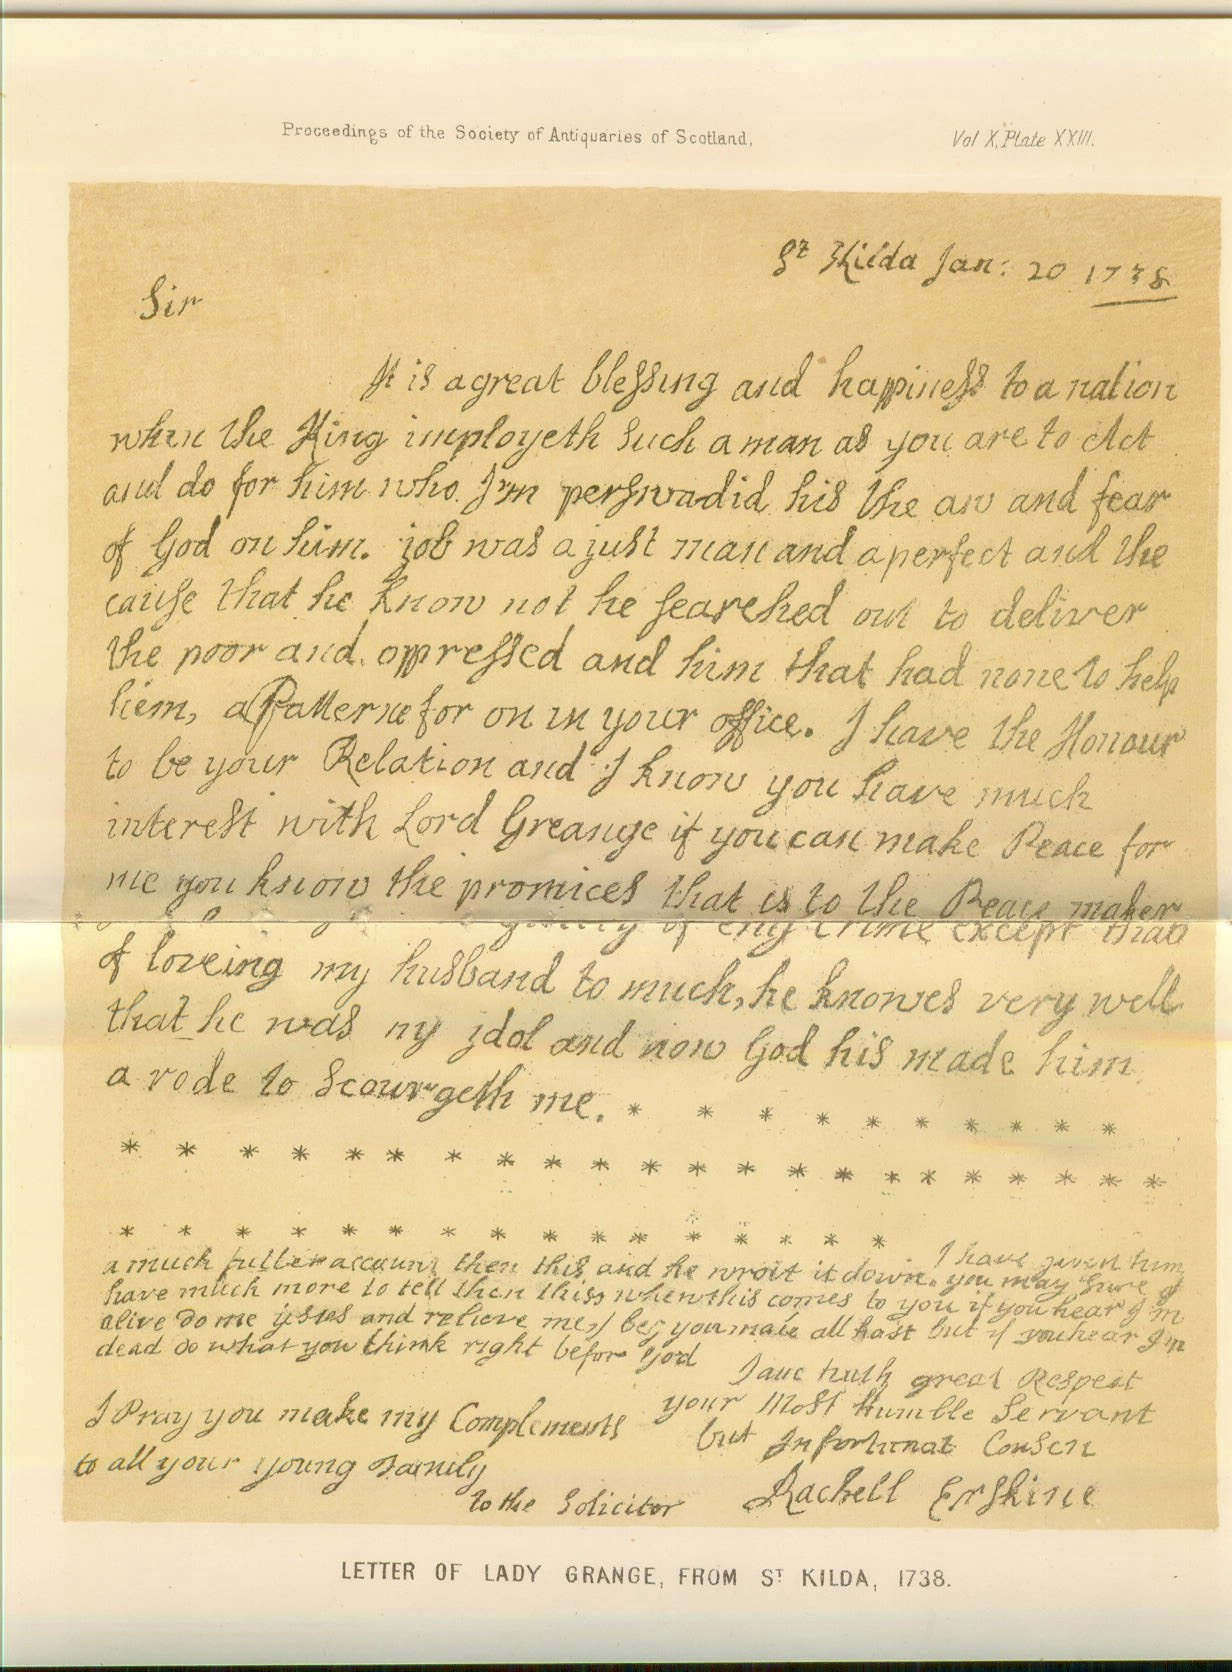 Proceedings of the Society of Antiquaries of Scotland,
Vol X, Plate XXIII.
St Kilda Jan: 20 1738
Sir
It is a great blessing and happiness to a nation
when the King imployeth such a man as you are to Act
and do for him who I'm perswadid his the aw and fear
of God on him. job was a just man and a perfect and the
cause that he know not he searched out to deliver
the poor and oppressed and him that had none to help
hiem, a Patterne for on in your office. I have the Honour
to be your Relation and I know you have much
interest with Lord Greange if you can make Peace for
me you know the promices that is to the Peace maker
guilty of eny crime except that
of loveing my husband to much, he knowes very well
that he was my idol and now God his made him
a rode to scourgeth me. * * * * * * * * * *
* * * * * * * * * * * * * * * * * * * * *
* * * * * * * * * * * * * * *
I have given him
a much fuller account then this and he wrot it down. you may sure I
have much more to tell then this when this comes to you if you hear I'm
alive do me and relieve me, I beg you make all hast but if you hear I'm
dead do what you think right befor God
I with great Respect
your Most Humble Servant
but Infortunat Cousen
Rachell Erskine
I Pray you make my Complements
to all your young Family
to the Solicitor
LETTER OF LADY GRANGE, FROM ST KILDA, 1738.